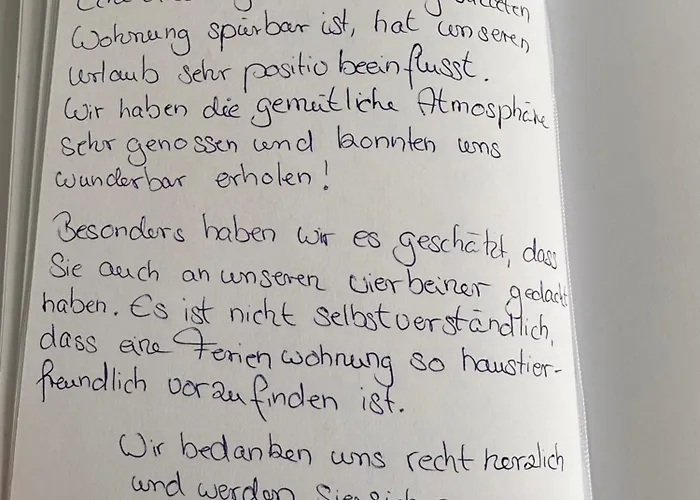 Wohnung spürbar ist, hat unseren
Urlaub sehr positiv beeinflusst.
Wir haben die gemütliche Atmosphäre
sehr genossen und konnten uns
wunderbar erholen!
Besonders haben wir es geschätzt, dass
Sie auch an unseren Vierbeiner gedacht
haben. Es ist nicht selbstverständlich,
dass eine Ferienwohnung so haustier-
freundlich vorzufinden ist.
Wir bedanken uns recht herzlich
und werden Sie